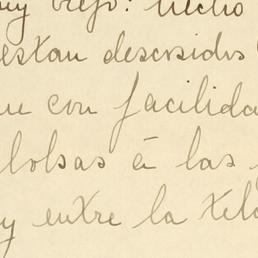 uy viejo: hecho
estan descosidos
ue con facilida
bolsas á las
y entre la tela